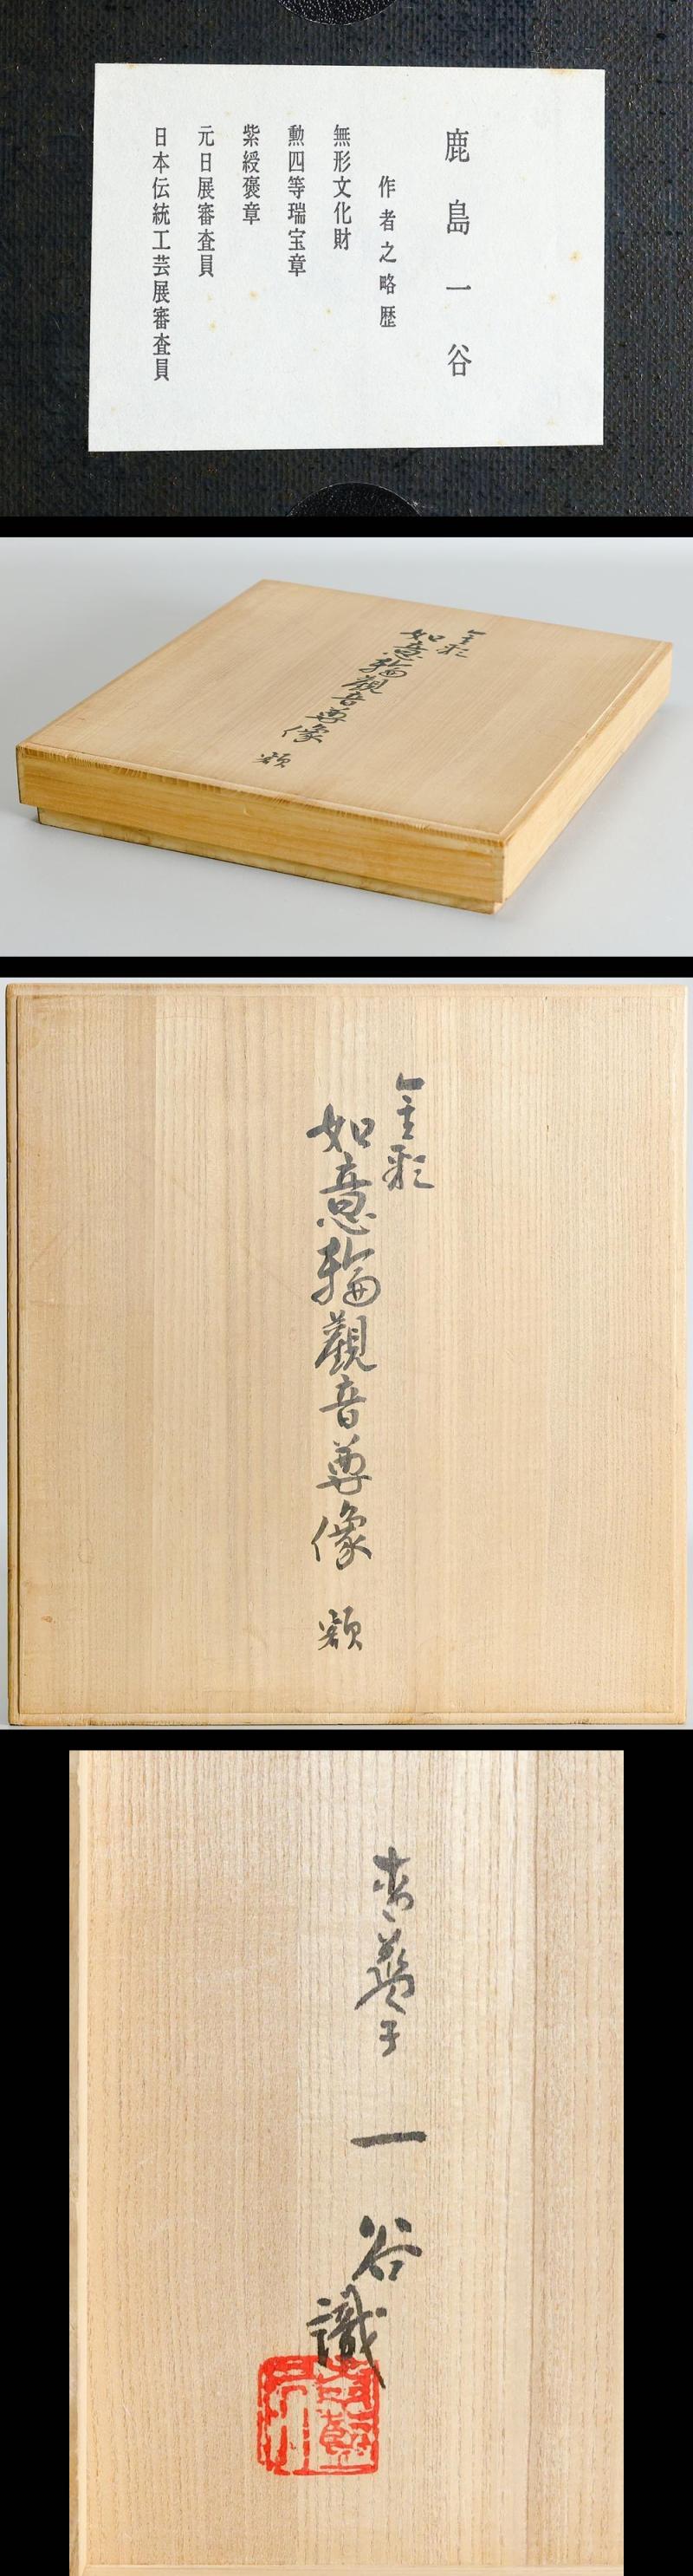 鹿島一谷
作者之略歴
無形文化財
勲四等瑞宝章
紫綬褒章
元日展審査員
日本伝統工芸展審査員
金彩
如意輪觀音尊像 額
金彩
如意輪觀音尊像 額
一谷
識